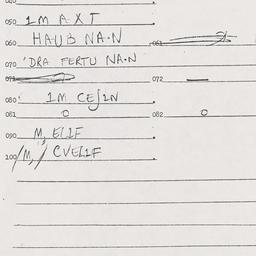 050 1M A X T
060 HAUB NA·N 061
070 'DRA FERTU NA·N
071 072 —
080 1M CEJ1N
081 0 082 0
090 M, EL1F
100 /M, / CVEL1F